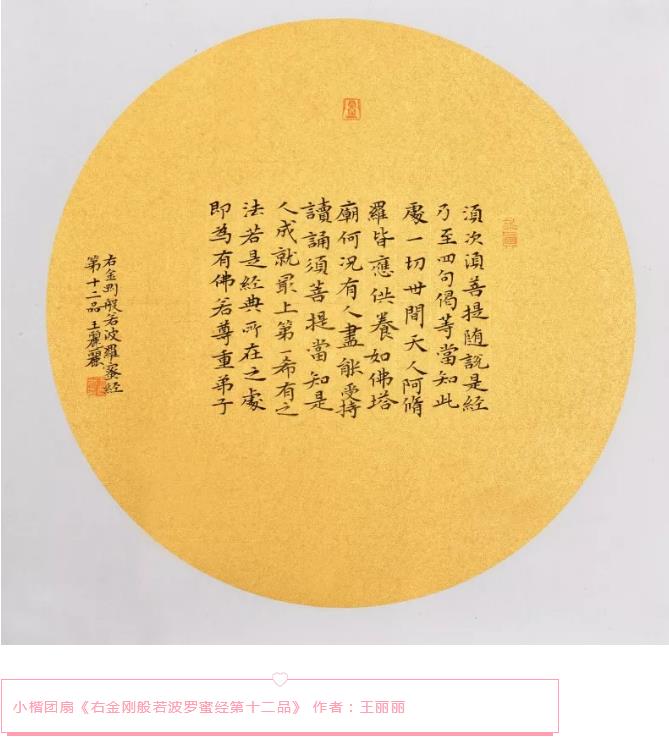 湏次湏菩提随說是經
乃至四句偈等當知此
處一切世間天人阿脩
羅皆應供養如佛塔
廟何況有人盡能受持
讀誦須菩提當知是
人成就最上第一希有之
法若是經典所在之處
即為有佛若尊重弟子
右金剛般若波羅蜜经
第十二品 王麗麗
小楷团扇《右金刚般若波罗蜜经第十二品》 作者：王丽丽